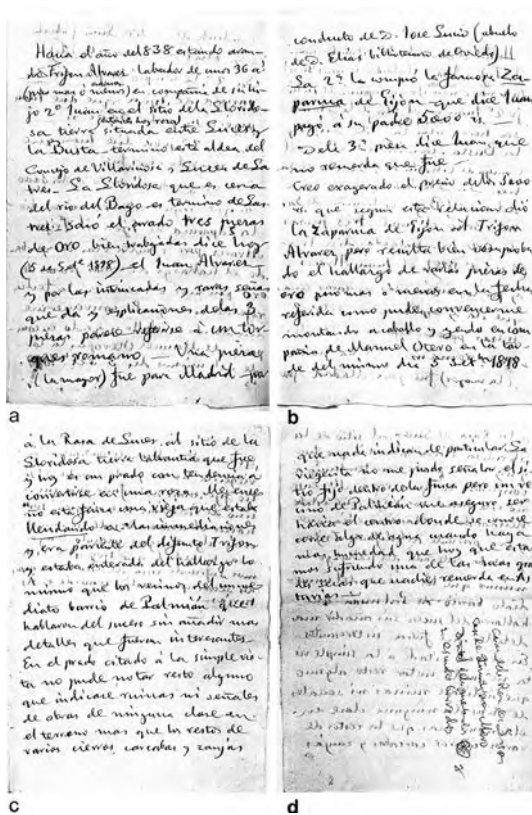 Hacia el año del 838 estando aran-
do Trifon Alvarez labrador de unos 36 aˢ
(poco mas ó menos) en compañia de su hi-
jo 2º Juan en el sitio de la Llorido-
sa tierra situada entre Suces y
la Busta termino esta aldea del
Concejo de Villaviciosa y Suces de Sa
riego. La Lloridosa que es cerca
del rio del Bago es termino de Sa
riego. Salió el prado tres piezas
de oro, bien trabajadas dice hoy
(5 de Setᵉ 1898) el Juan Alvarez
y por las intrincadas y raras señas
que da y esplicaciones de las 3
piezas parece referirse á un tor
ques romano — Una pieza
(la mayor) fue para Madrid por
a
conducto de D. Jose Junio (abuelo
de D. Elias bibliotecario de Oviedo)
La 2ª la compró la famosa Za-
parma de Gijon que dice Juan
pagó á su padre 5000 rˢ —
De la 3ª pieza dice Juan, que
no recuerda que fue
Creo exagerado el precio de los 5000
rˢ que segun esta relacion dió
la Zaparma de Gijon al Trifon
Alvarez, pero resulta bien comproba
do el hallazgo de varias piezas de
oro poco mas ó menos en la fecha
referida como pude convencerme
montando á caballo y yendo en com
pañia de Manuel Otero en la tar
de del mismo dia 5 Set. 1898
b
á la Rasa de Suces, al sitio de la
Lloridosa tierra labrantia que fue
y hoy es un prado con tendencia á
convertirse en una roza. Me ense
ñó esta finca una vieja que estaba
llendando en las inmediaciones
y era parienta del difunto Trifon
y estaba enterada del hallazgo lo
mismo que los vecinos del inme
diato barrio de Palmian quienes
hablaron del suceso sin añadir mas
detalles que fueran interesantes.
En el prado citado á la simple vis-
ta no pude notar resto alguno
que indicase ruinas ni señales
de obras de ninguna clase en
el terreno mas que los restos de
varios cierros, carcabas y zanjas
c
que nada indican de particular. La
viejecita no me pudo señalar el si-
tio fijo dentro de la finca pero un ve
cino de Palmian me aseguró ser
hacia el centro donde se conoce
correr algo de agua cuando haya
mas humedad que hoy que esta
mos sufriendo una de las secas gran
des secas que nadie recuerda en As
turias.
d